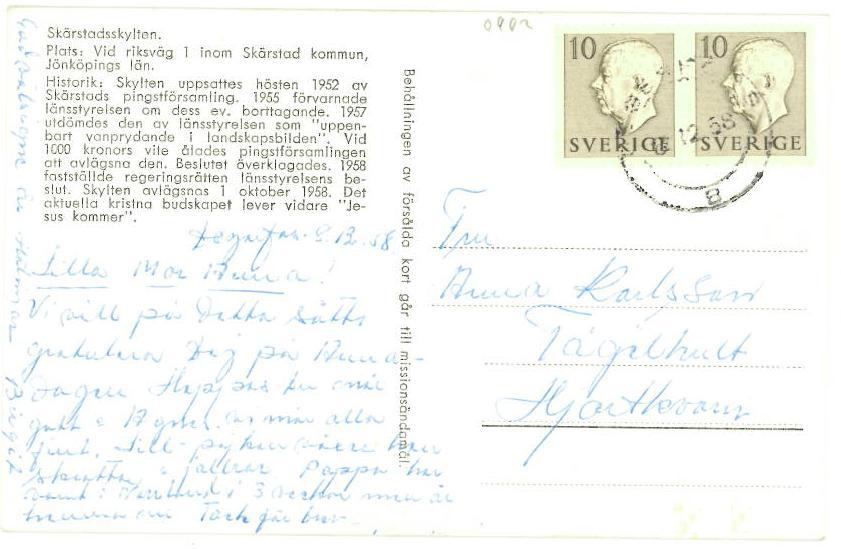 Skärstadsskylten.
Plats: Vid riksväg 1 inom Skärstad kommun,
Jönköpings län.
Historik: Skylten uppsattes hösten 1952 av
Skärstads pingstförsamling. 1955 förvarnade
länsstyrelsen om dess ev. borttagande. 1957
utdömdes den av länsstyrelsen som "uppen-
bart vanprydande i landskapsbilden". Vid
1000 kronors vite ålades pingstförsamlingen
att avlägsna den. Beslutet överklagades. 1958
fastställde regeringsrätten länsstyrelsens be-
slut. Skylten avlägsnas 1 oktober 1958. Det
aktuella kristna budskapet lever vidare "Je-
sus kommer".
12.58
Lilla Mor Anna!
Vi vill på detta sätt
gratulera Dig på Anna-
dagen Hoppas du mår
gott vi mår alla
Lill-pojken
skrattar o jollrar Pappa har
varit i 3 veckor men är
hemma nu Tack för
Birgit
Behållningen av försålda kort går till missionsändamål.
0902
10
SVERIGE
10
SVERIGE
12 58
B
Fru
Anna Karlsson
Tågelhult